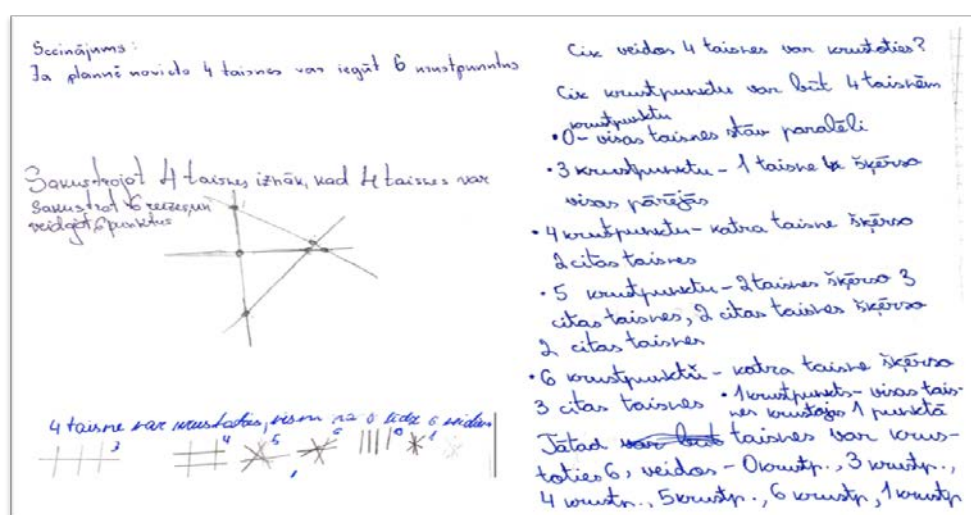 Secinājums:
Ja plannē novieto 4 taisnes var iegūt 6 krustpunktus
Sakustrojot 4 taisnes iznāk, kad 4 taisnes var
sakustrot 6 reizes, un
veidojot 6 punktus
4 taisne var krustoties, vism no 0 līdz 6 veidos
3
4
5
6
0
1
Cik veidos 4 taisnes var krustoties?
Cik krustpunktu var būt 4 taisnēm
krustpunktu
• 0 – visas taisnes stāv paralēli
• 3 krustpunktu – 1 taisne šķērso
visas pārējās
• 4 krustpunktu – katra taisne šķērso
2 citas taisnes
• 5 krustpunktu – 2 taisnes šķērso 3
citas taisnes, 2 citas taisnes šķērso
2 citas taisnes
• 6 krustpunktu – katra taisne šķērso
3 citas taisnes
• 1 krustpunkts – visas tais-
nes krustojas 1 punktā
Tātad taisnes var krus-
toties 6, veidos – 0 krustp., 3 krustp.,
4 krustp., 5 krustp., 6 krustp, 1 krustp